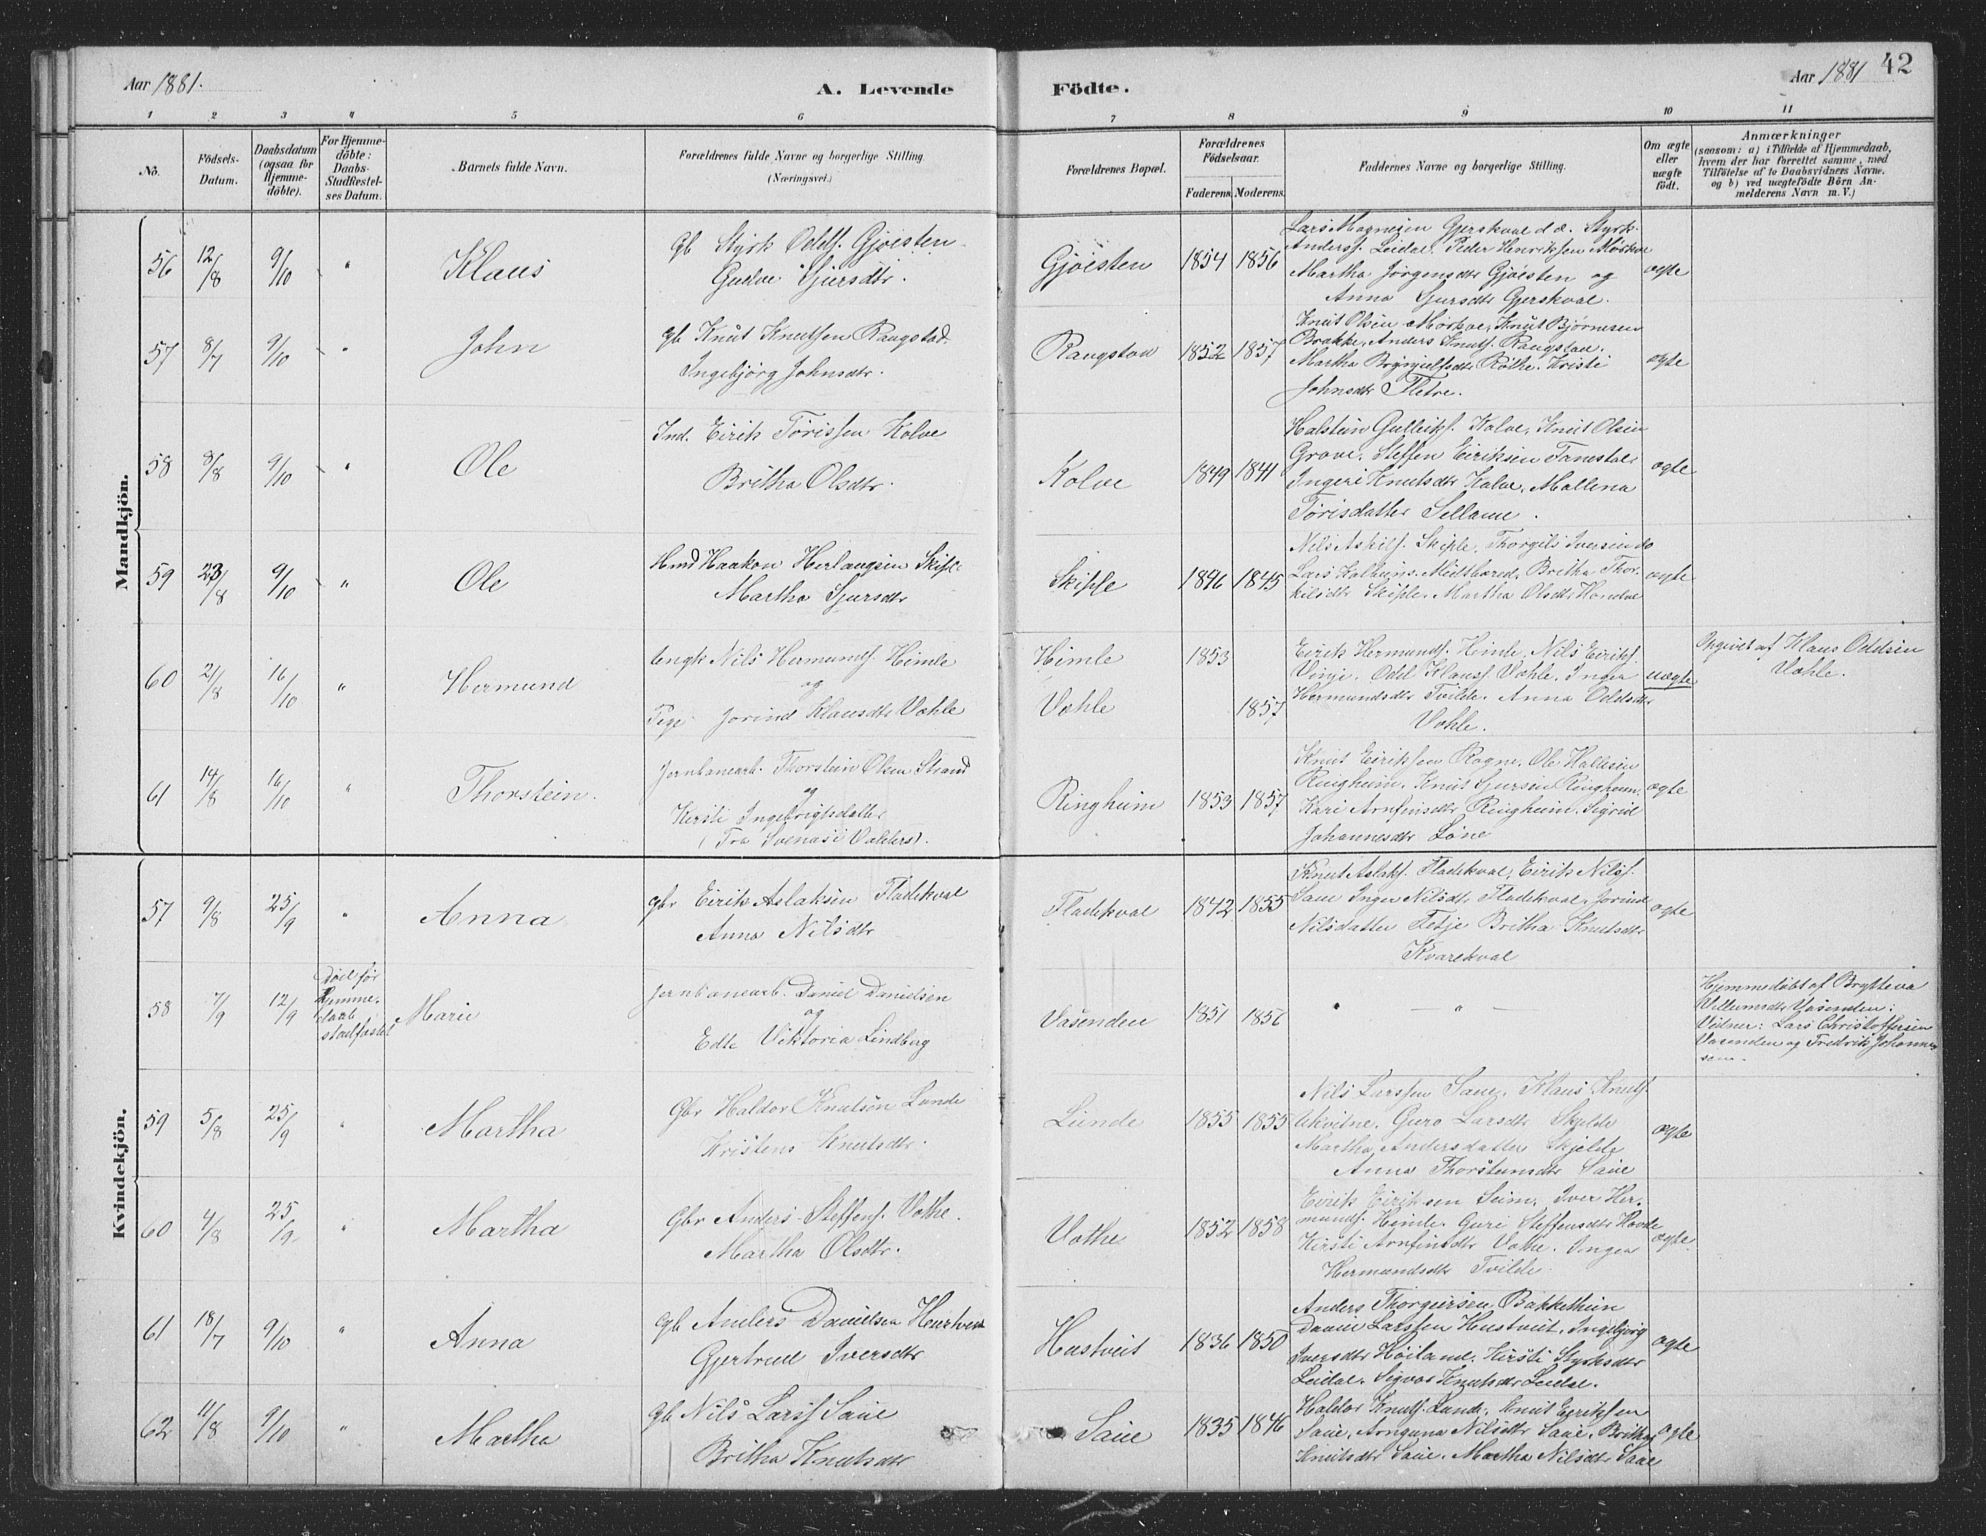 Aar 1881.
A. Levende
Födte.
Aar 1881
42
1 2 3 4 5 6 7 8 9 10 11
No.
Födsels-
Datum.
Daabsdatum
(ogsaa for
Hjemme-
döbte).
For Hjemme-
döbte:
Daabs-
Stadfæstel-
ses Datum.
Barnets fulde Navn.
Forældrenes fulde Navne og borgerlige Stilling.
(Næringsvei.)
Forældrenes Bopæl.
Forældrenes
Födselsaar.
Faderens. Moderens.
Faddernes Navne og borgerlige Stilling.
Om ægte
eller
uægte
födt.
Anmærkninger
(saasom: a) i Tilfælde af Hjemmedaab,
hvem der har forrettet samme, med
Tilföielse af to Daabsvidners Navne.
og b) ved uægtefödte Börn An-
melderens Navn m. V.)
Mandkjön.
56 12/8 9/10 " Klaus
Gb Styrk Odds. Gjøisten
Gudve Sjursdtr.
Gjøisten 1854 1856
Lars Magnesen Gjerskval d.æ. Styrk
Anderss. Leidal Peder Henriksen Mørkve
Martha Jørgensdtr Gjøisten og
Anna Sjursdtr Gjerskval.
ægte
57 8/7 9/10 " John
gb Knut Knutsen Raugstad
Ingebjørg Johnsdtr.
Raugstad 1852 1857
Knut Olsen Mørkve, Knut Bjørnesen
Brække, Anders Knuts. Raugstad.
Martha Brynjulfsdtr Røthe. Kristi
Johnsdtr Fletre.
ægte
58 8/8 9/10 " Ole
Ind. Eirik Tørissen Kolve
Britha Olsdtr.
Kolve 1849 1841
Halstein Gulleiks. Kolve, Knut Olsen
Grove. Steffen Eiriksen
Ingeri Knutsdtr Kolve, Mallena
Tørisdatter
ægte
59 23/8 9/10 " Ole
Hmd Haakon Herlaugsen Skiple
Martha Sjursdtr
Skiple 1846 1845
Nils Askils. Skiple, Thorgils Iversen do
Lars Kolbeins. Midtbøred, Britha Thor-
kilsdtr Skiple. Martha Olsdtr Hondve
ægte
60 21/8 16/10 " Hermund
Ungk Nils Hermunds. Himle
og
Pige Jorind Klausdtr Væhle
Himle 1853
Væhle 1857
Eirik Hermunds. Himle, Nils Eiriks.
Vinje. Odd Klauss. Væhle, Inga
Hermundsdtr Tvilde. Anna Oddsdtr
Væhle.
uægte
Opgivet af Klaus Oddsen
Væhle.
61 14/8 16/10 " Thorstein.
Jernbanearb. Thorstein Olsen Strand
og
Kirsti Ingebrigtsdatter
(Fra Svenæs i Valders).
Ringheim 1853 1857
Knut Eiriksen Rogne, Ole Hallesen
Ringheim. Knut Sjursen Ringheim.
Kari Arnfinsdtr Ringheim. Sigrid
Johannesdtr Løne
ægte
Kvindekjön.
57 9/8 25/9 " Anna
gbr Eirik Aslaksen Fladekval
Anna Nilsdtr
Fladekval 1842 1855
Knut Aslaks. Fladekval, Eirik Nilss.
Saue Inger Nilsdtr Fladekval, Jorind
Nilsdatter Tesje Britha Knutsdtr
Kvarekval
ægte
58 7/9 12/9
død før
Hjemme-
daab
stadfæstet
Marie
Jernbanearb. Daniel Danielsen
og
Edle Viktoria Lindberg
Vasenden 1851 1856
" — " —
Hjemmedøbt af Brytteva
Villumsdtr Vasenden;
Vidner: Lars Christoffersen
Vasenden og Fredrik Johanne-
sen.
59 5/8 25/9 " Martha
Gbr Haldor Knutsen Lunde
Kristens Knutsdtr.
Lunde 1855 1855
Nils Larssen Saue. Klaus Knuts.
Ukvitne. Guro Larsdtr Skjelde
Martha Andersdatter Skjelde
Anna Thorsteinsdtr Saue
ægte
60 4/8 25/9 " Martha
Gbr Anders Steffens. Væthe.
Martha Olsdtr.
Væthe 1852 1858
Eirik Eiriksen Seim, Iver Her-
munds. Himle. Guri Steffensdtr Hovde
Kirsti Arnfinsdtr Væthe. Inga
Hermundsdtr Tvilde.
ægte
61 18/7 9/10 " Anna
gb Anders Danielsen Hustveit
Gjertrud Iversdtr
Hustveit 1836 1850
Anders Thorgeirsen Bakkethun
Daniel Larssen Hustveit, Ingebjørg
Iversdtr Høiland. Kirsti Styrksdtr
Leidal. Sigvor Knutsdtr Leidal.
ægte
62 11/8 9/10 " Martha
gb Nils Larss Saue
Britha Knutsdtr
Saue 1835 1846
Haldor Knuts. Lunde. Knut Eiriksen
Saue, Arnguna Nilsdtr Saue, Britha
Knutsdtr Saue. Martha Nilsdtr Saue
ægte